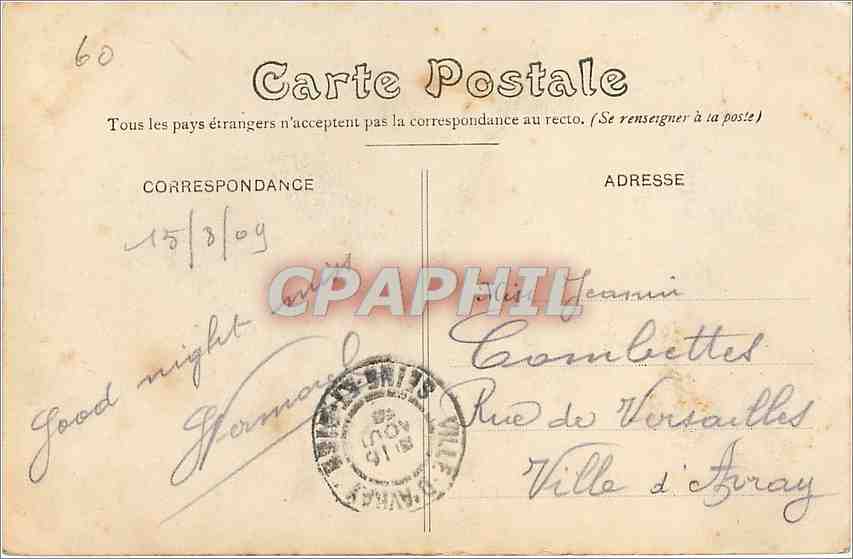 60
Carte Postale
Tous les pays étrangers n'acceptent pas la correspondance au recto. (Se renseigner à la poste)
CORRESPONDANCE
15/8/09
Good night miss
ADRESSE
Miss Jeanni
Combettes
Rue de Versailles
Ville d'Avray
CPAPHIL
VILLE-D'AVRAY
SEINE-ET-OISE
16
AOUT